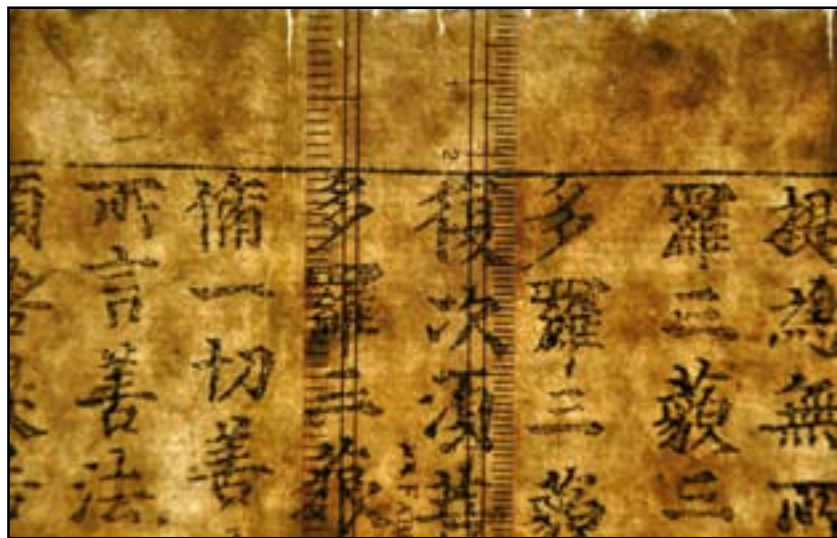 提為無所
羅三藐三
多羅三藐
復次須菩
多羅三藐
脩一切善
所言善法
1
2